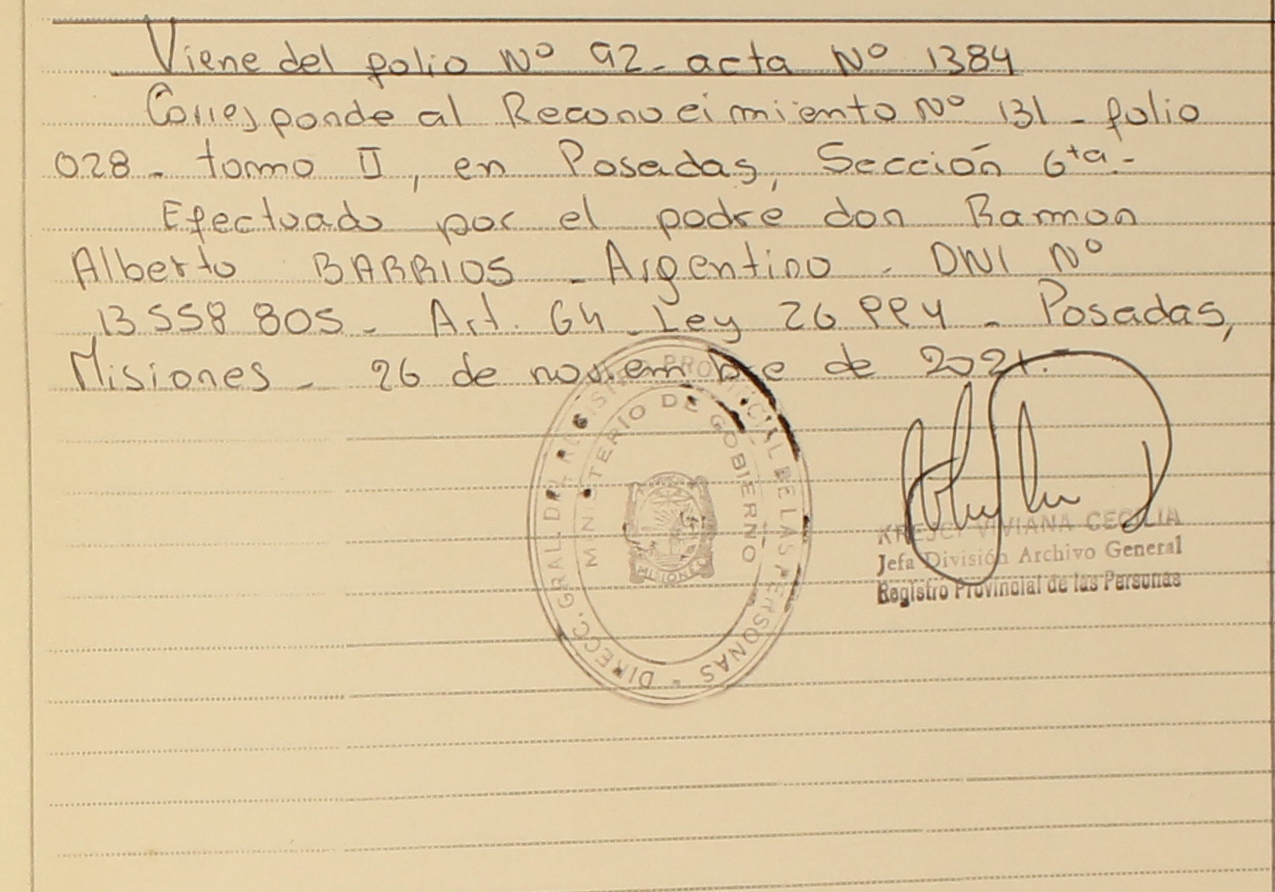 Viene del folio Nº 92- acta Nº 1384
Corresponde al Reconocimiento Nº 131 - folio
028 - tomo II, en Posadas, Sección 6ta.-
Efectuado por el padre don Ramon
Alberto BARRIOS - Argentino - DNI Nº
13 558 805 - Art. 64 - Ley 26 994 - Posadas,
Misiones - 26 de noviembre de 2021.
DIRECC. GRAL. DE REGISTRO PROVINCIAL DE LAS PERSONAS -
MINISTERIO DE GOBIERNO
MISIONES
KREJCI VIVIANA CECILIA
Jefa División Archivo General
Registro Provincial de las Personas